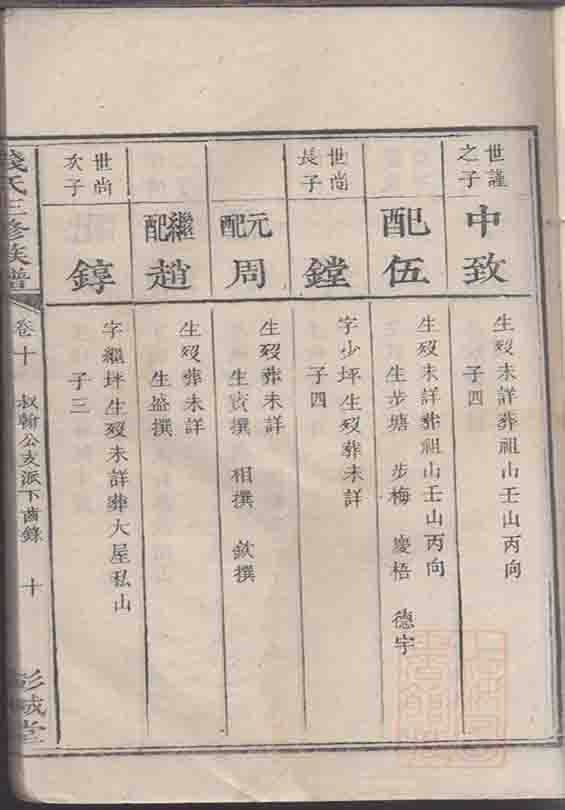 世謹
之子
中致
生歿未詳葬祖山壬山丙向
子四
配伍
生歿未詳葬祖山壬山丙向
生步塘 步梅 慶梧 德宇
世尚
長子
鏜
字少坪生歿葬未詳
子四
元配
周
生歿葬未詳
生賓撰 相撰 欽撰
繼配
趙
生歿葬未詳
生盛撰
世尚
次子
錞
字繼坪生歿未詳葬大屋私山
子三
錢氏三修族譜
卷十
叔翰公支派下齒錄
十
彭城堂